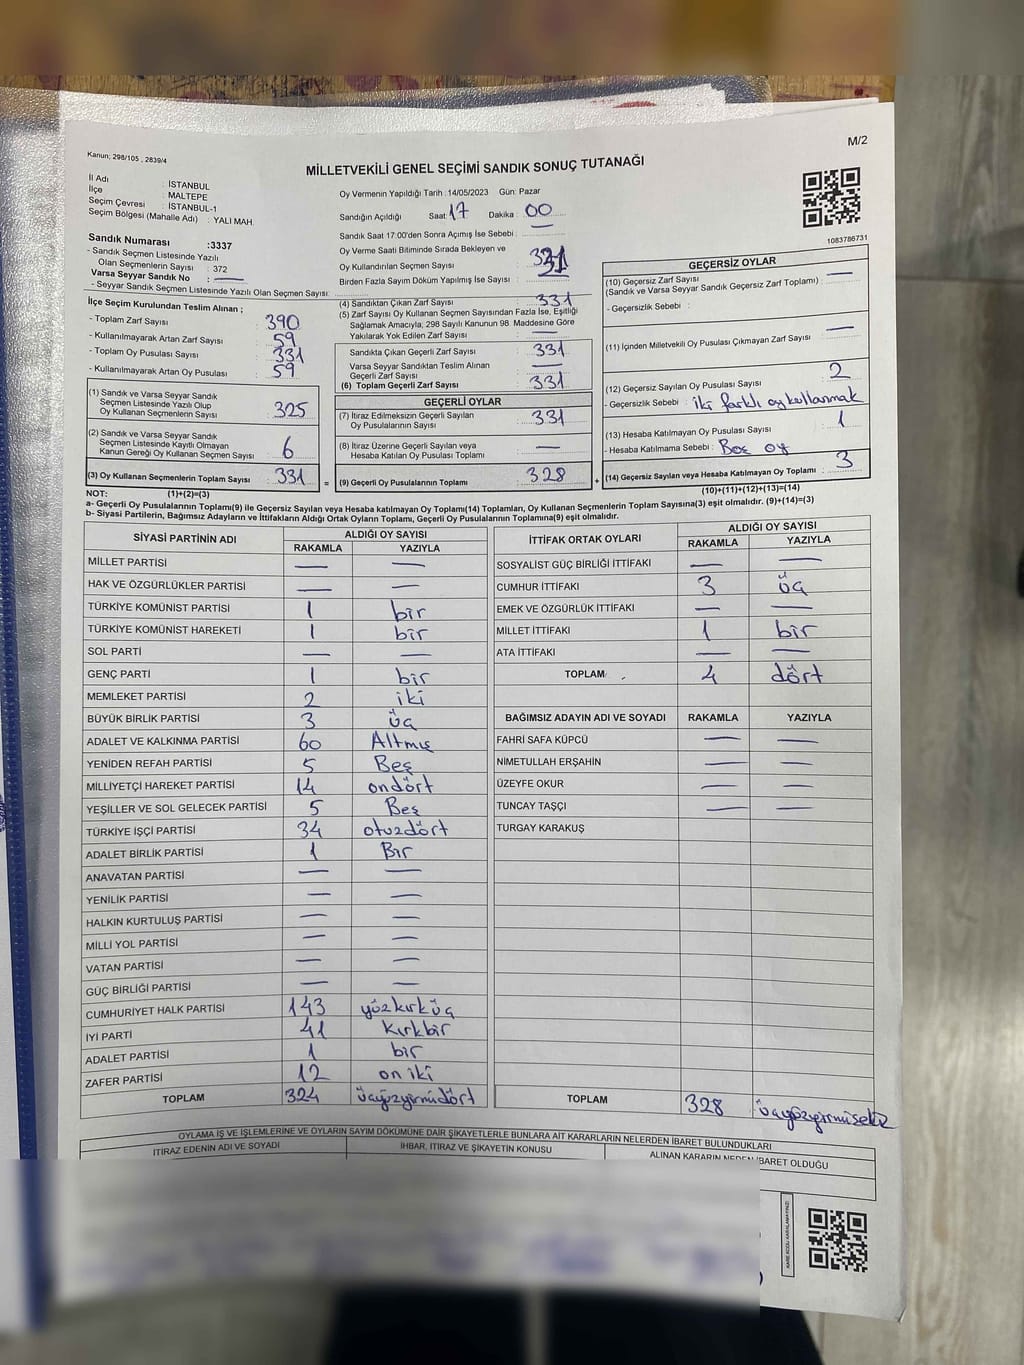 M/2
Kanun; 298/105 , 2839/4
MİLLETVEKİLİ GENEL SEÇİMİ SANDIK SONUÇ TUTANAĞI
İl Adı : İSTANBUL
İlçe : MALTEPE
Seçim Çevresi : İSTANBUL-1
Seçim Bölgesi (Mahalle Adı) : YALI MAH.
Sandık Numarası :3337
- Sandık Seçmen Listesinde Yazılı
Olan Seçmenlerin Sayısı : 372
Varsa Seyyar Sandık No : —
- Seyyar Sandık Seçmen Listesinde Yazılı Olan Seçmen Sayısı:
İlçe Seçim Kurulundan Teslim Alınan ;
- Toplam Zarf Sayısı : 390
- Kullanılmayarak Artan Zarf Sayısı : 59
- Toplam Oy Pusulası Sayısı : 331
- Kullanılmayarak Artan Oy Pusulası : 59
(1) Sandık ve Varsa Seyyar Sandık
Seçmen Listesinde Yazılı Olup
Oy Kullanan Seçmenlerin Sayısı : 325
(2) Sandık ve Varsa Seyyar Sandık
Seçmen Listesinde Kayıtlı Olmayan
Kanun Gereği Oy Kullanan Seçmen Sayısı : 6
(3) Oy Kullanan Seçmenlerin Toplam Sayısı : 331
Oy Vermenin Yapıldığı Tarih : 14/05/2023 Gün: Pazar
Sandığın Açıldığı Saat: 17 Dakika : 00
Sandık Saat 17:00'den Sonra Açımış İse Sebebi : —
Oy Verme Saati Bitiminde Sırada Bekleyen ve
Oy Kullandırılan Seçmen Sayısı : 331
Birden Fazla Sayım Döküm Yapılmış İse Sayısı :
(4) Sandıktan Çıkan Zarf Sayısı : 331
(5) Zarf Sayısı Oy Kullanan Seçmen Sayısından Fazla İse, Eşitliği
Sağlamak Amacıyla, 298 Sayılı Kanunun 98. Maddesine Göre
Yakılarak Yok Edilen Zarf Sayısı : —
Sandıkta Çıkan Geçerli Zarf Sayısı : 331
Varsa Seyyar Sandıktan Teslim Alınan
Geçerli Zarf Sayısı : —
(6) Toplam Geçerli Zarf Sayısı : 331
GEÇERLİ OYLAR
(7) İtiraz Edilmeksizin Geçerli Sayılan
Oy Pusulalarının Sayısı : 331
(8) İtiraz Üzerine Geçerli Sayılan veya
Hesaba Katılan Oy Pusulası Toplamı : —
= (9) Geçerli Oy Pusulalarının Toplamı : 328
1083786731
GEÇERSİZ OYLAR
(10) Geçersiz Zarf Sayısı : —
(Sandık ve Varsa Seyyar Sandık Geçersiz Zarf Toplamı)
- Geçersizlik Sebebi :
(11) İçinden Milletvekili Oy Pusulası Çıkmayan Zarf Sayısı : —
(12) Geçersiz Sayılan Oy Pusulası Sayısı : 2
- Geçersizlik Sebebi : iki farklı oy kullanmak
(13) Hesaba Katılmayan Oy Pusulası Sayısı : 1
- Hesaba Katılmama Sebebi : Boş oy
+ (14) Geçersiz Sayılan veya Hesaba Katılmayan Oy Toplamı : 3
NOT: (1)+(2)=(3) (10)+(11)+(12)+(13)=(14)
a- Geçerli Oy Pusulalarının Toplamı(9) ile Geçersiz Sayılan veya Hesaba katılmayan Oy Toplamı(14) Toplamları, Oy Kullanan Seçmenlerin Toplam Sayısına(3) eşit olmalıdır. (9)+(14)=(3)
b- Siyasi Partilerin, Bağımsız Adayların ve İttifakların Aldığı Ortak Oyların Toplamı, Geçerli Oy Pusulalarının Toplamına(9) eşit olmalıdır.
SİYASİ PARTİNİN ADI ALDIĞI OY SAYISI
RAKAMLA YAZIYLA
MİLLET PARTİSİ — —
HAK VE ÖZGÜRLÜKLER PARTİSİ — —
TÜRKİYE KOMÜNİST PARTİSİ 1 bir
TÜRKİYE KOMÜNİST HAREKETİ 1 bir
SOL PARTİ — —
GENÇ PARTİ 1 bir
MEMLEKET PARTİSİ 2 iki
BÜYÜK BİRLİK PARTİSİ 3 üç
ADALET VE KALKINMA PARTİSİ 60 Altmış
YENİDEN REFAH PARTİSİ 5 Beş
MİLLİYETÇİ HAREKET PARTİSİ 14 ondört
YEŞİLLER VE SOL GELECEK PARTİSİ 5 Beş
TÜRKİYE İŞÇİ PARTİSİ 34 otuzdört
ADALET BİRLİK PARTİSİ 1 Bir
ANAVATAN PARTİSİ — —
YENİLİK PARTİSİ — —
HALKIN KURTULUŞ PARTİSİ — —
MİLLİ YOL PARTİSİ — —
VATAN PARTİSİ — —
GÜÇ BİRLİĞİ PARTİSİ — —
CUMHURİYET HALK PARTİSİ 143 yüzkırküç
İYİ PARTİ 41 kırkbir
ADALET PARTİSİ 1 bir
ZAFER PARTİSİ 12 on iki
TOPLAM 324 üçyüzyirmidört
İTTİFAK ORTAK OYLARI ALDIĞI OY SAYISI
RAKAMLA YAZIYLA
SOSYALİST GÜÇ BİRLİĞİ İTTİFAKI — —
CUMHUR İTTİFAKI 3 üç
EMEK VE ÖZGÜRLÜK İTTİFAKI — —
MİLLET İTTİFAKI 1 bir
ATA İTTİFAKI — —
TOPLAM 4 dört
BAĞIMSIZ ADAYIN ADI VE SOYADI RAKAMLA YAZIYLA
FAHRİ SAFA KÜPCÜ — —
NİMETULLAH ERŞAHİN — —
ÜZEYFE OKUR — —
TUNCAY TAŞÇI — —
TURGAY KARAKUŞ
TOPLAM 328 üçyüzyirmisekiz
OYLAMA İŞ VE İŞLEMLERİNE VE OYLARIN SAYIM DÖKÜMÜNE DAİR ŞİKAYETLERLE BUNLARA AİT KARARLARIN NELERDEN İBARET BULUNDUKLARI
İTİRAZ EDENİN ADI VE SOYADI İHBAR, İTİRAZ VE ŞİKAYETİN KONUSU ALINAN KARARIN NEDEN İBARET OLDUĞU